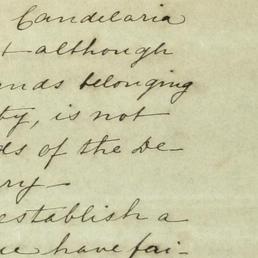 Candelaria
t although
ends belonging
ty, is not
ds of the De-
ry —
establish a
ue have fai-